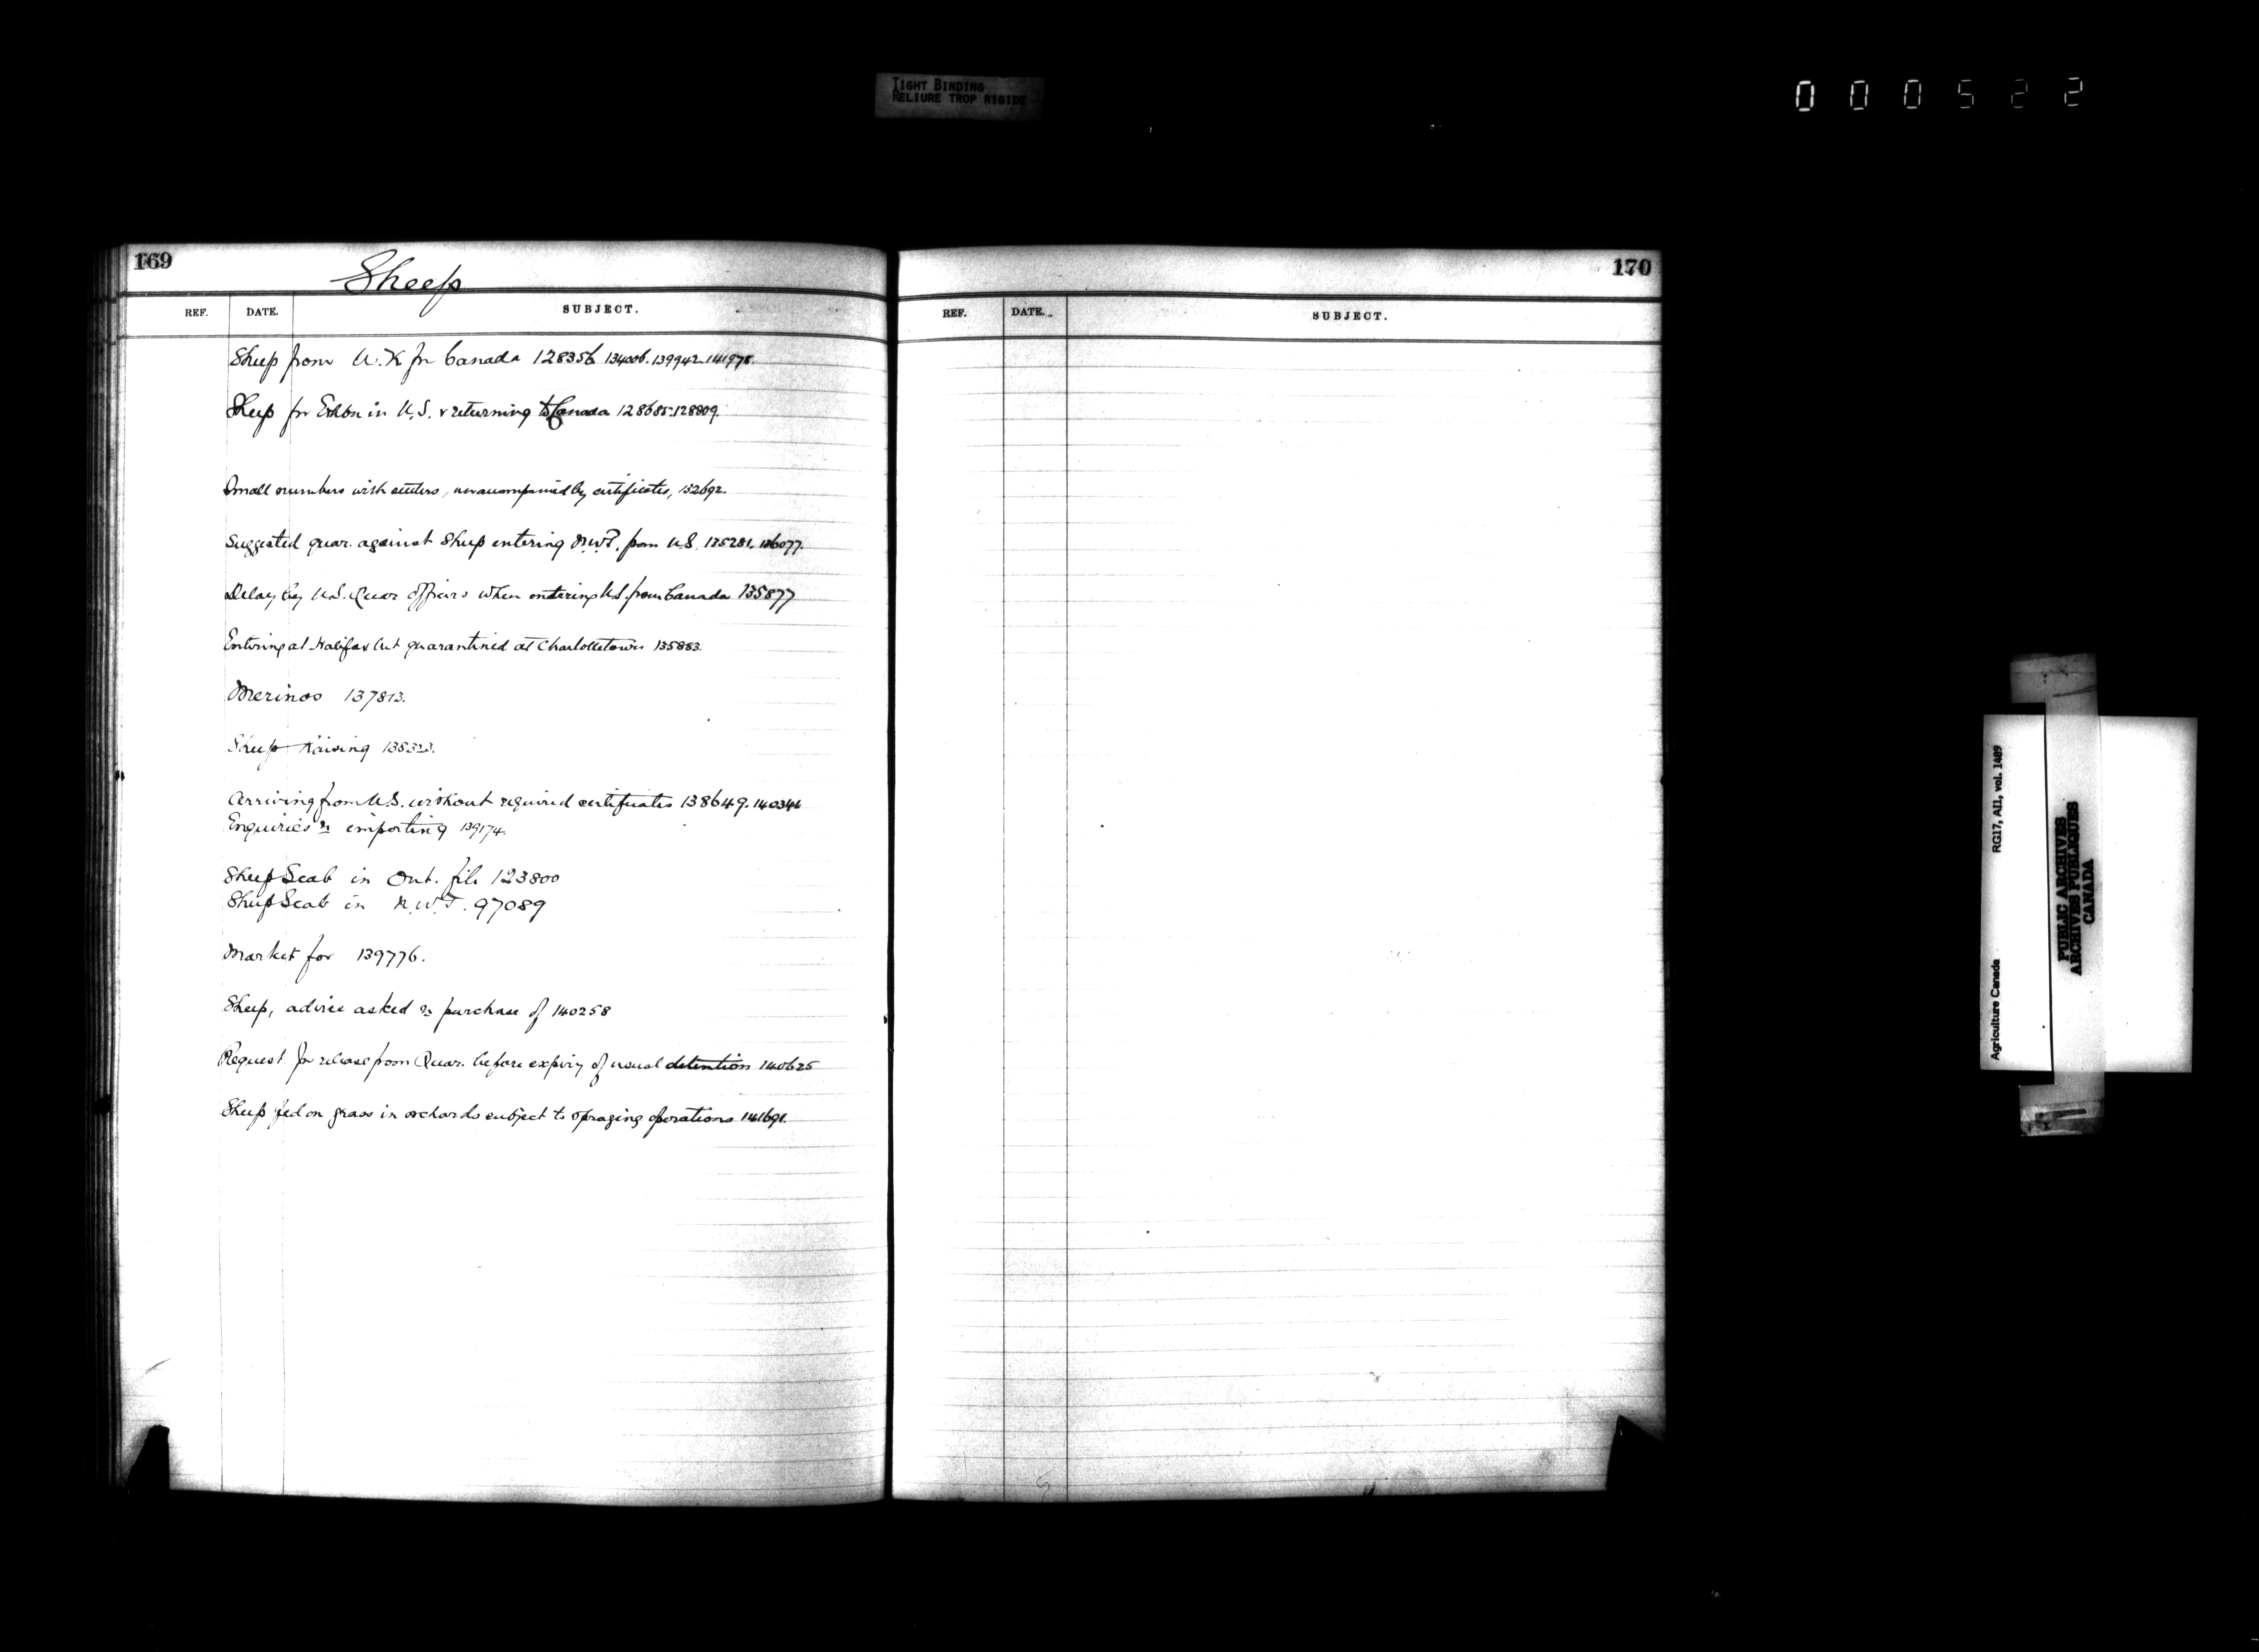 TIGHT BINDING
RELIURE TROP RIGIDE
000522
169
Sheep
REF. DATE. SUBJECT.
Sheep from U.K for Canada 128356 134006. 139942. 141978.
Sheep for Exhbn in U.S. & returning to Canada 128685-128809.
Small numbers with settlers, unaccompanied by certificates, 132692.
Suggested quar. against Sheep entering N.W.T. from U.S. 135281. 136077.
Delay by U.S. Quar officers when entering U.S. from Canada 135877
Entering at Halifax but quarantined at Charlottetown 135883.
Merinos 137813.
Sheep Raising 138323.
Arriving from U.S. without required certificates 138649. 140344
Enquiries re importing 139174.
Sheep Scab in Ont. file 123800
Sheep Scab in N.W.T. 97089
Market for 139776.
Sheep, advice asked re purchase of 140258
Request for release from Quar. before expiry of usual detention 140625
Sheep fed on grass in orchards subject to spraying operations 141691.
170
REF. DATE. SUBJECT.
Agriculture Canada RG17, AII, vol. 1489
PUBLIC ARCHIVES
ARCHIVES PUBLIQUES
CANADA